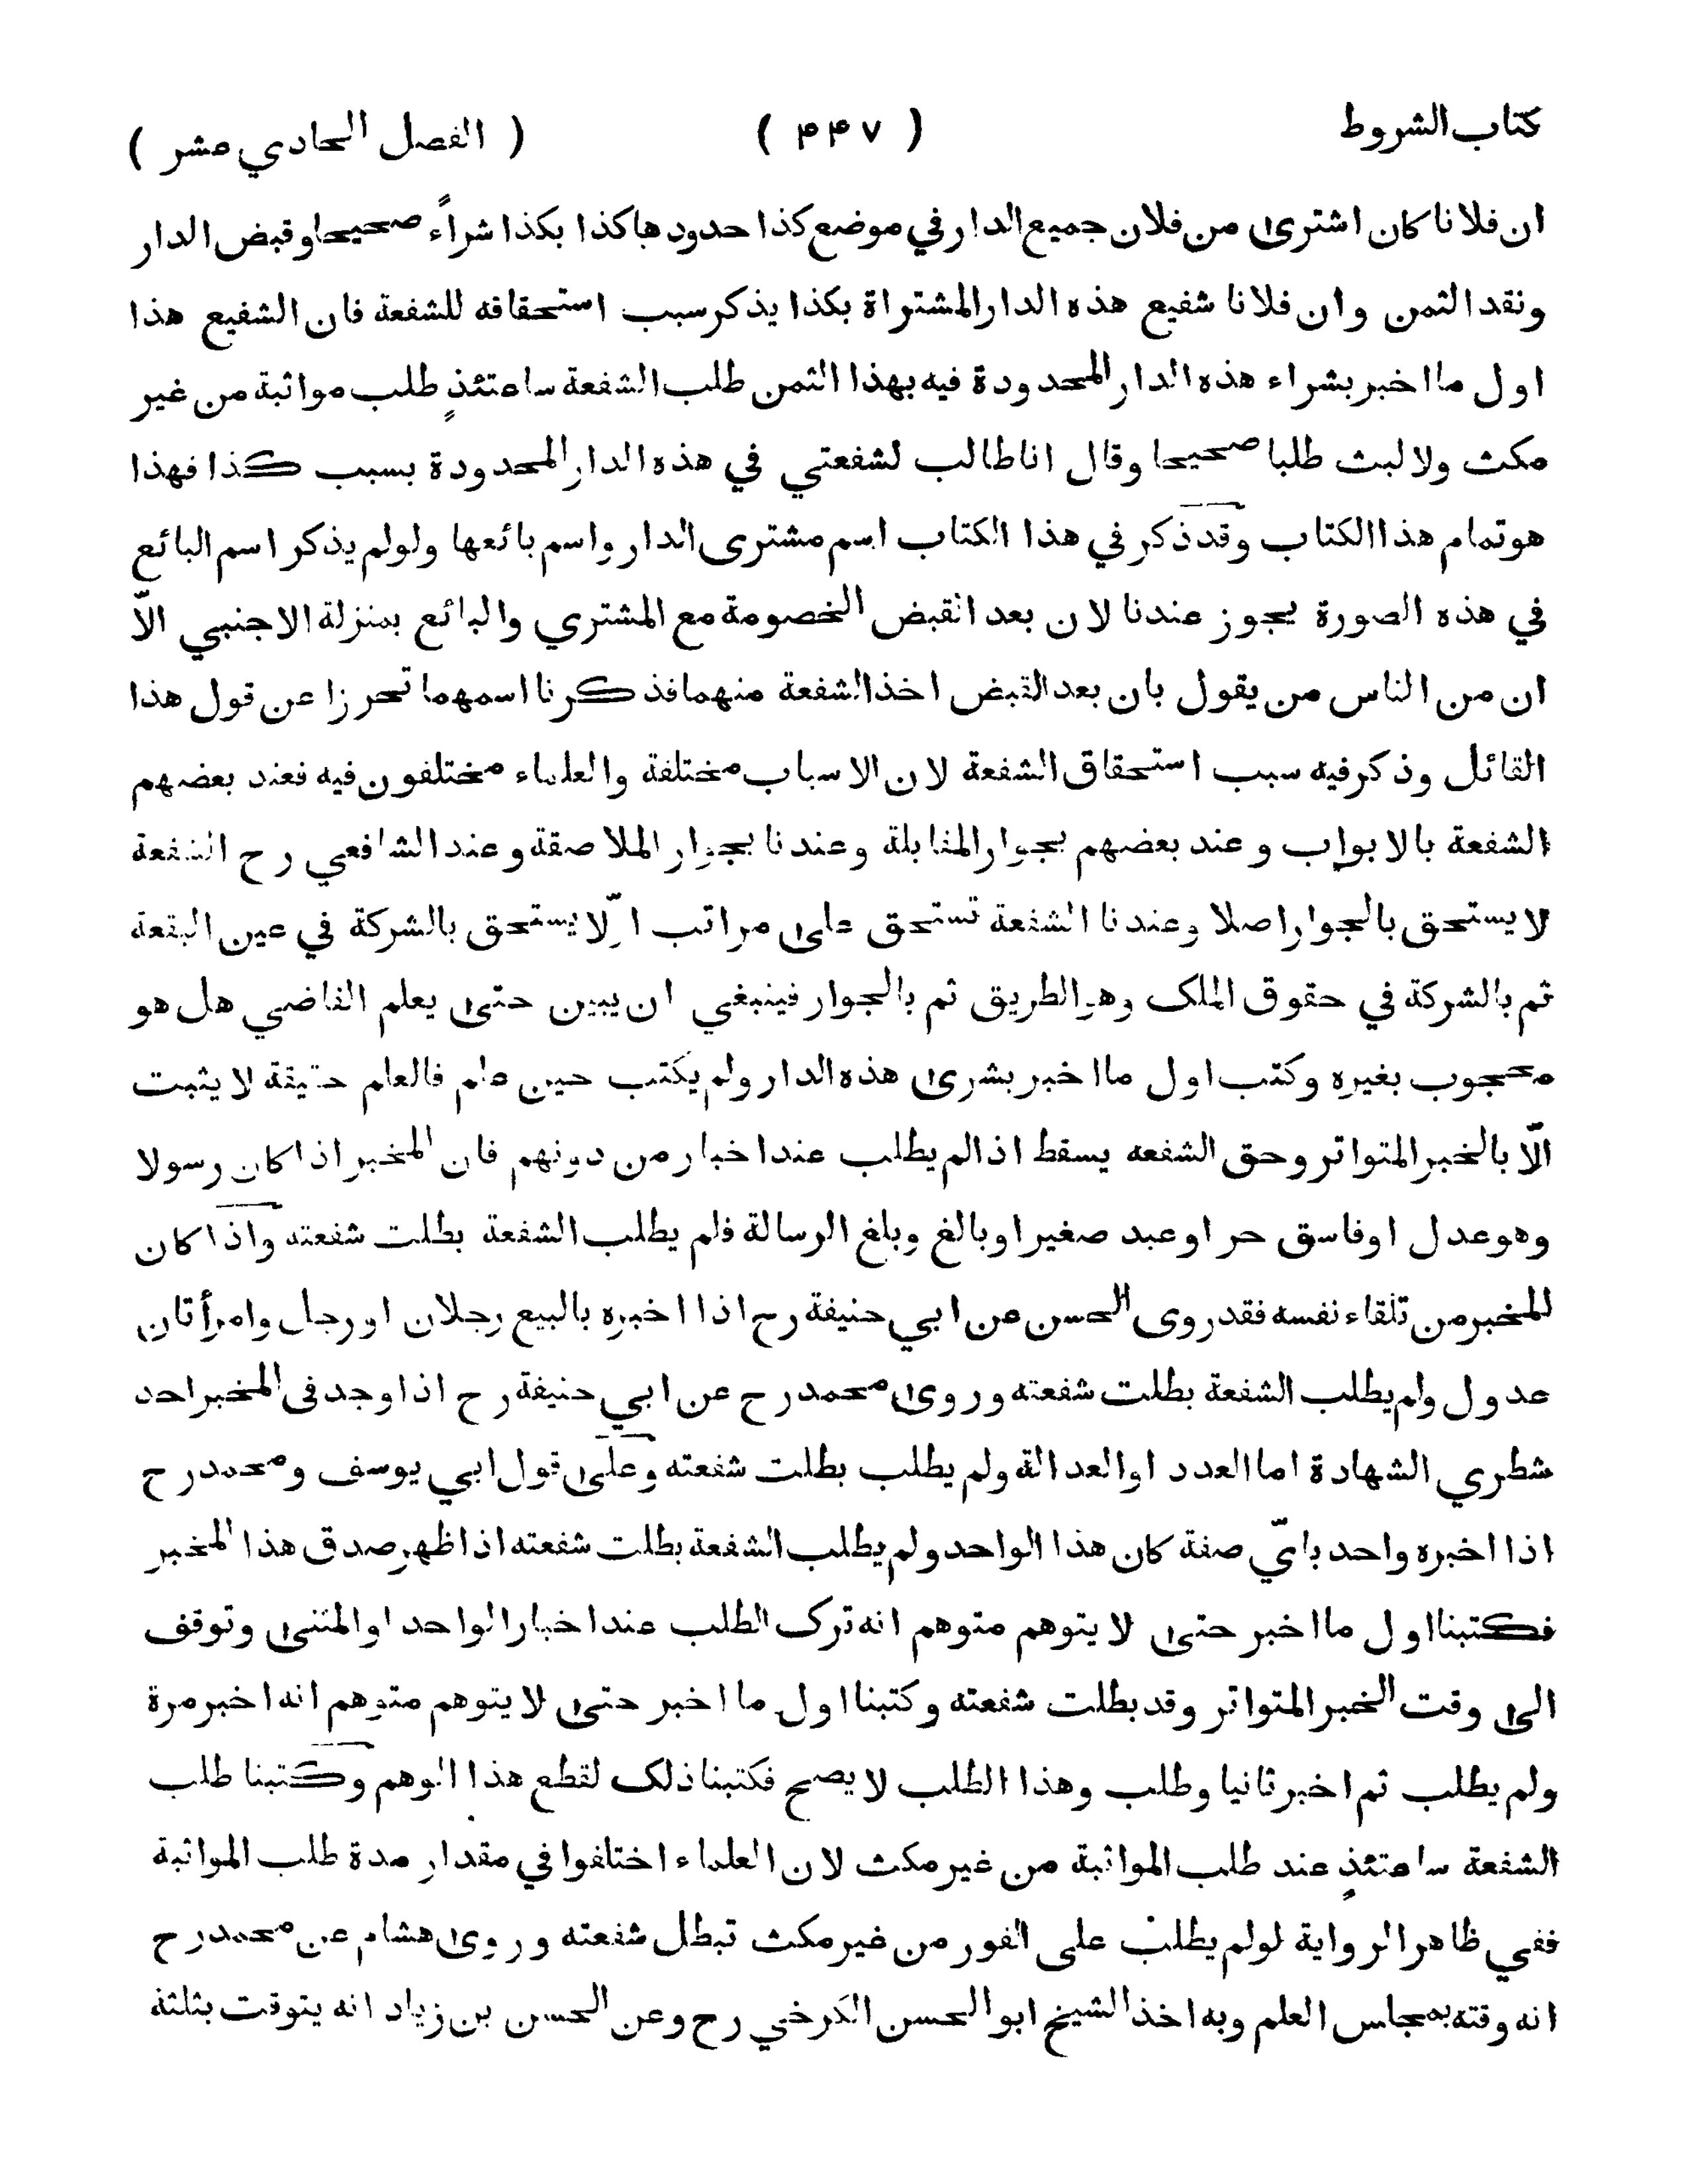 كتاب الشروط ( ۴۴۷ ) ( الفصل الحادي عشر )
ان فلانا كان اشترى من فلان جميع الدار في موضع كذا حدودها كذا بكذا شراءً صحيحا وقبض الدار
ونقد الثمن وان فلانا شفيع هذه الدار المشتراة بكذا يذكر سبب استحقاقه للشفعة فان الشفيع هذا
اول ما اخبر بشراء هذه الدار المحدودة فيه بهذا الثمن طلب الشفعة ساعتئذٍ طلب مواثبة من غير
مكث ولا لبث طلبا صحيحا وقال انا طالب لشفعتي في هذه الدار المحدودة بسبب كذا فهذا
هو تمام هذا الكتاب وقد ذكر في هذا الكتاب اسم مشترى الدار واسم بائعها ولو لم يذكر اسم البائع
في هذه الصورة يجوز عندنا لان بعد القبض الخصومة مع المشتري والبائع بمنزلة الاجنبي الّا
ان من الناس من يقول بان بعد القبض اخذ الشفعة منهما فذكرنا اسمهما تحرزا عن قول هذا
القائل وذكر فيه سبب استحقاق الشفعة لان الاسباب مختلفة والعلماء مختلفون فيه فعند بعضهم
الشفعة بالابواب وعند بعضهم بجوار المقابلة وعندنا بجوار الملاصقة وعند الشافعي رح الشفعة
لا يستحق بالجوار اصلا وعندنا الشفعة تستحق على مراتب اوّلا يستحق بالشركة في عين البقعة
ثم بالشركة في حقوق الملك وهو الطريق ثم بالجوار فينبغي ان يبين حتى يعلم القاضي هل هو
محجوب بغيره وكتب اول ما اخبر بشرى هذه الدار ولم يكتب حين علم فالعلم حقيقة لا يثبت
الّا بالخبر المتواتر وحق الشفعه يسقط اذا لم يطلب عند اخبار من دونهم فان المخبر اذا كان رسولا
وهو عدل او فاسق حر او عبد صغير او بالغ وبلغ الرسالة فلم يطلب الشفعة بطلت شفعته واذا كان
للمخبر من تلقاء نفسه فقد روى الحسن عن ابي حنيفة رح اذا اخبره بالبيع رجلان او رجل وامرأتان
عدول ولم يطلب الشفعة بطلت شفعته وروى محمد رح عن ابي حنيفة رح اذا وجد فى المخبر احد
شطري الشهادة اما العدد او العدالة ولم يطلب بطلت شفعته وعلى قول ابي يوسف ومحمد رح
اذا اخبره واحد بايّ صفة كان هذا الواحد ولم يطلب الشفعة بطلت شفعته اذا ظهر صدق هذا المخبر
فكتبنا اول ما اخبر حتى لا يتوهم متوهم انه ترك الطلب عند اخبار الواحد او المثنى وتوقف
الى وقت الخبر المتواتر وقد بطلت شفعته وكتبنا اول ما اخبر حتى لا يتوهم متوهم انه اخبر مرة
ولم يطلب ثم اخبر ثانيا وطلب وهذا الطلب لا يصح فكتبنا ذلك لقطع هذا الوهم وكتبنا طلب
الشفعة ساعتئذٍ عند طلب المواثبة من غير مكث لان العلماء اختلفوا في مقدار مدة طلب المواثبة
ففي ظاهر الرواية لو لم يطلب على الفور من غير مكث تبطل شفعته وروى هشام عن محمد رح
انه وقته بمجلس العلم وبه اخذ الشيخ ابو الحسن الكرخي رح وعن الحسن بن زياد انه يتوقت بثلثة